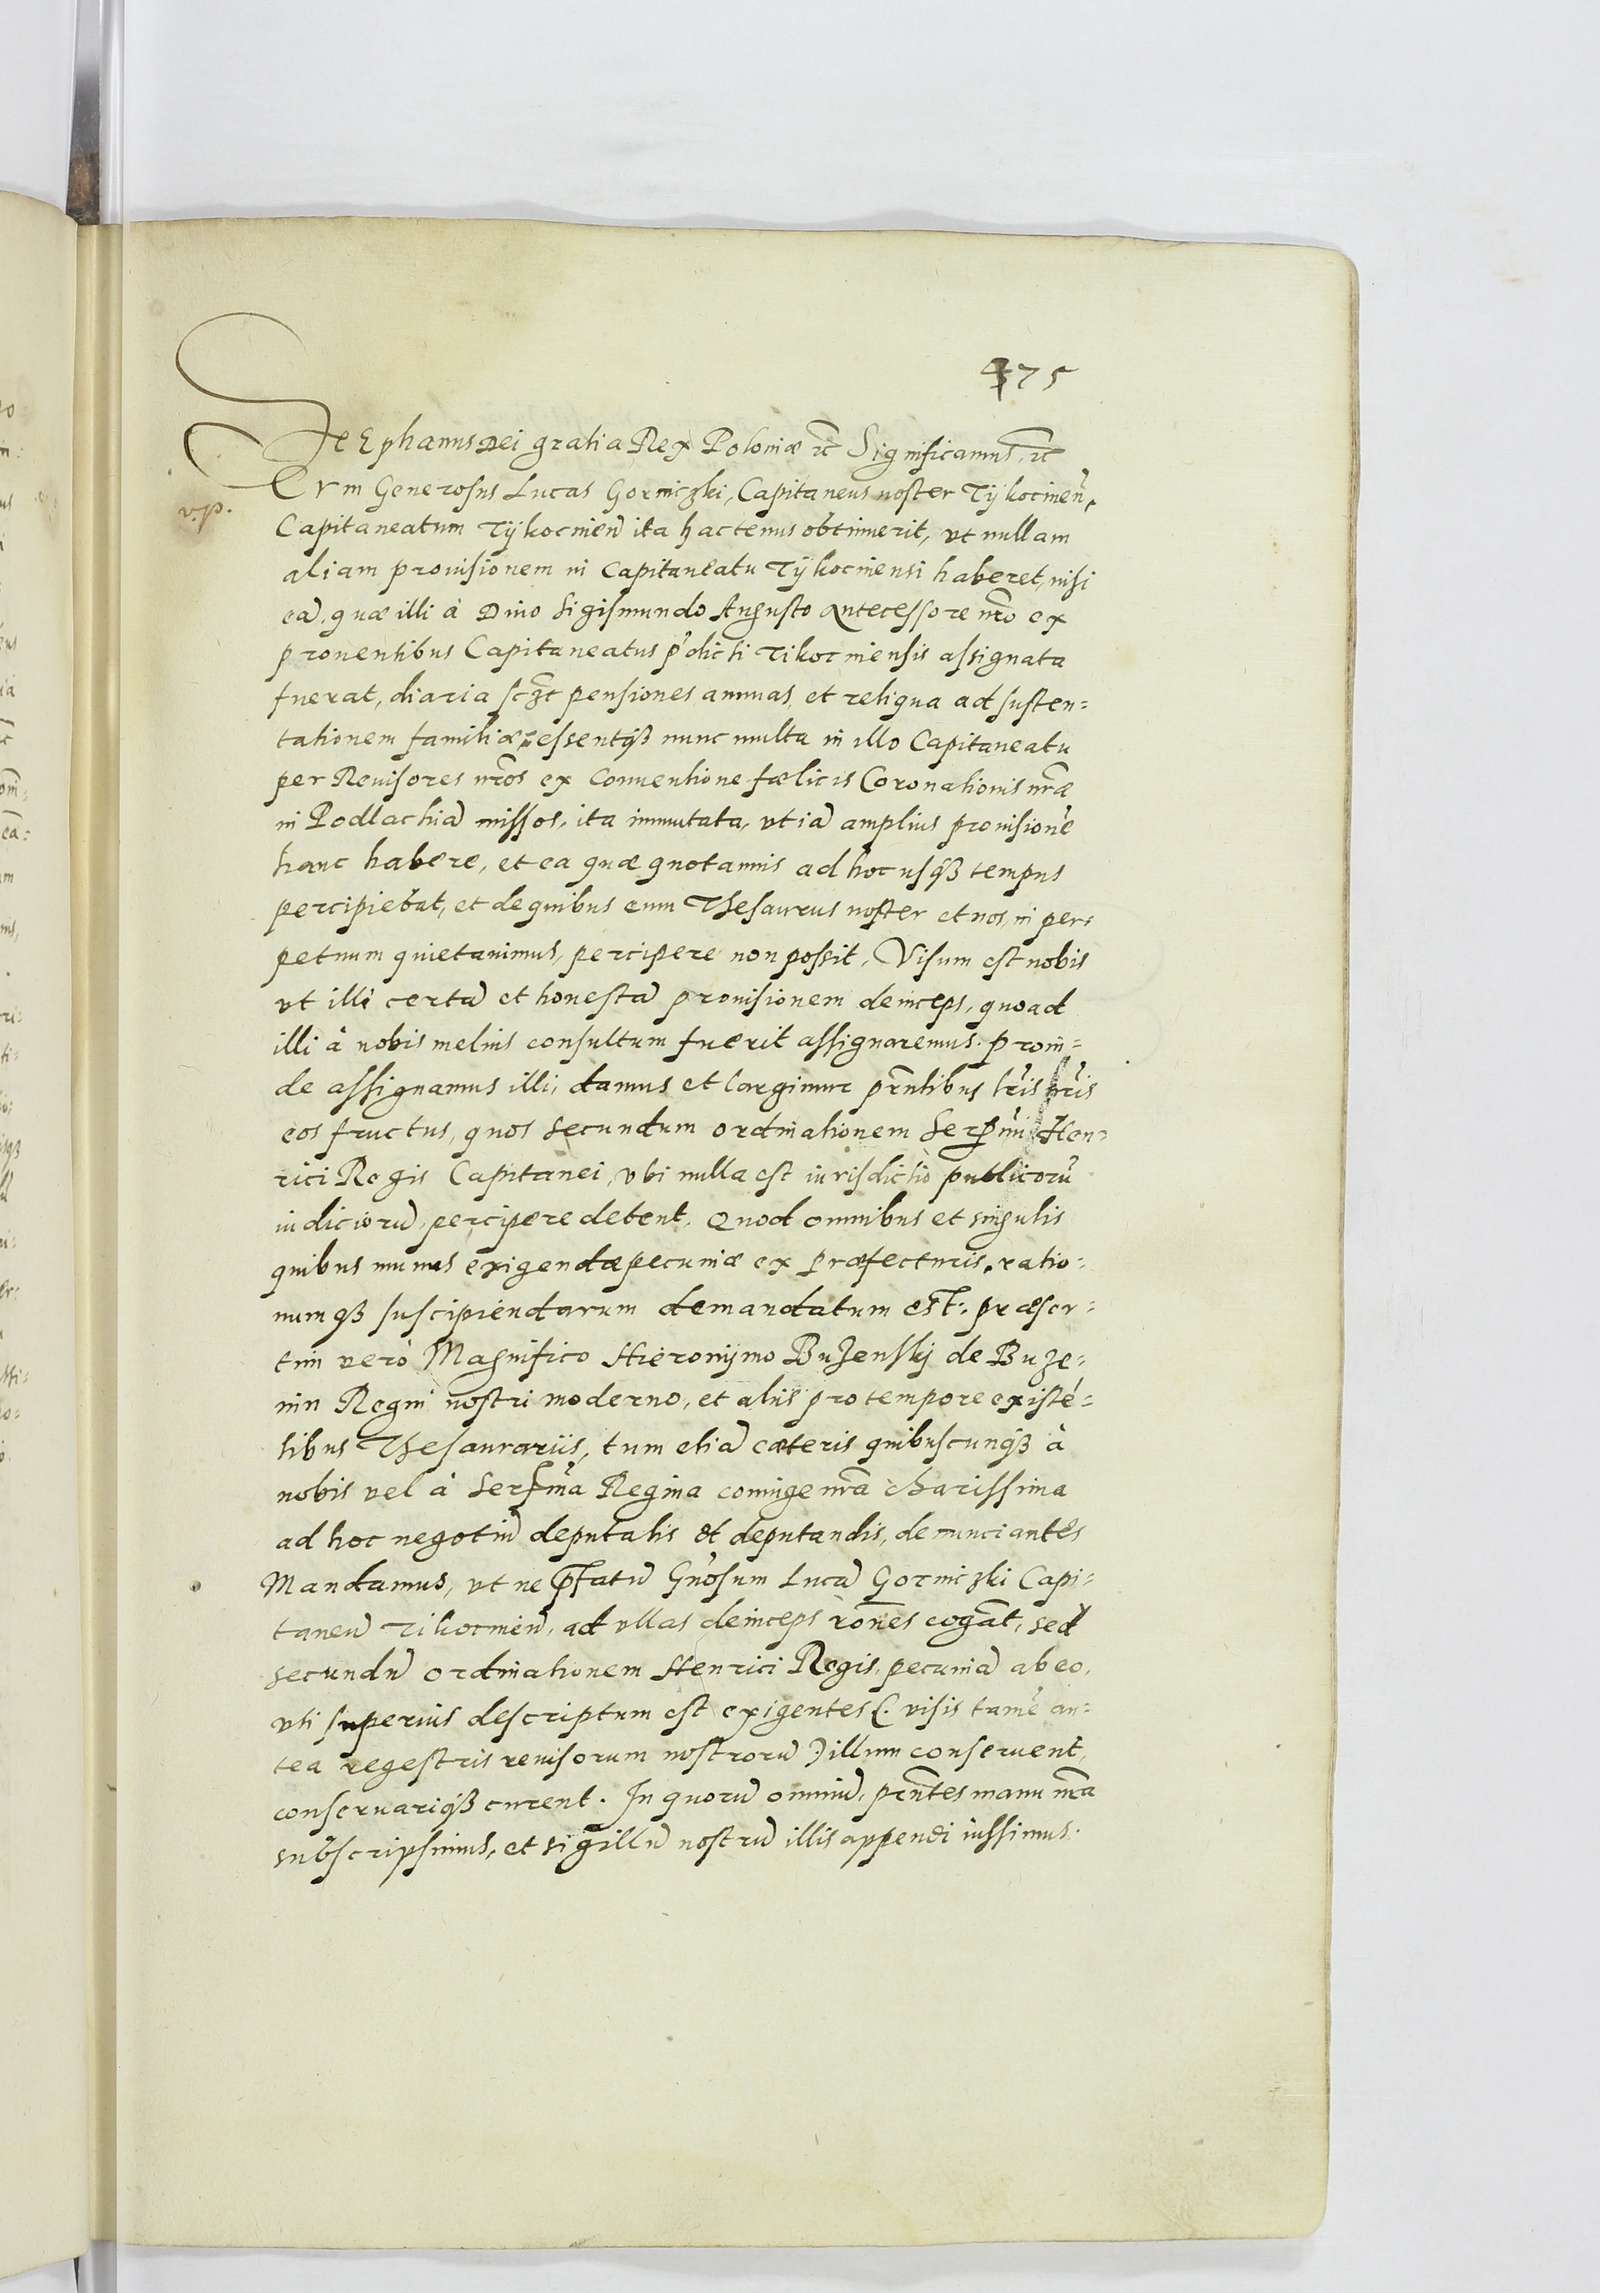 475
Stephanus Dei gratia Rex Poloniæ etc Significamus etc
v.p.
Cvm Generosus Lucas Gorniczki, Capitaneus noster Tÿkocinen̄,
Capitaneatum Tÿkocinen̄ ita hactenus obtinuerit, vt nullam
aliam prouisionem in Capitaneatu Tÿkocinensi haberet, nisi
eā, quæ illi à Diuo Sigismundo Augusto Antecessore nr̄o ex
prouentibus Capitaneatus p̄dicti Tikociniensis assignata
fuerat, diaria sczt pensiones annuas, et reliqua ad susten=
tationem familiæ, essentq3 nunc multa in illo Capitaneatu
per Reuisores nr̄os ex Conuentione fœlicis Coronationis nr̄æ
in Podlachiā missos, ita immutata, vt iā amplius prouisionē
hanc habere, et ea quæ quotannis ad hoc usq3 tempus
percipiebat, et de quibus eum Thesaurus noster et nos, in per=
petuum quietauimus, percipere non possit, Visum est nobis
vt illi certā et honestā prouisionem deinceps, quoad
illi à nobis melius consultum fuerit assignaremus. proin=
de assignamus illi, damus et largimur pr̄ntibus lr̄is nr̄is
eos fructus, quos secundum ordinationem Serenmi Hen=
rici Regis Capitanei, vbi nulla est iurisdictio publicorū
iudiciorū, percipere debent. Quod omnibus et singulis
quibus munus exigendæ pecuniæ ex Præfecturis, ratio=
numq3 suscipiendarum demandatum est: præser=
tim verò Magnifico Hieronÿmo Buzenskj de Buze=
nin Regni nostri moderno, et aliis pro tempore existē=
tibus Thesaurariis, tum etiā cæteris quibuscunq3 à
nobis vel à Serenmā Regina coniuge nr̄a charissima
ad hoc negotiū deputatis et deputandis, denunciantes
Mandamus, vt ne p̄fatū Gn̄osum Lucā Gorniczki Capi=
taneū Tikocinen̄, ad vllas deinceps rōnes cogāt, sed
secundū ordinationem Henrici Regis, pecuniā ab eo,
vti superius descriptum est exigentes (: visis tamē an=
tea regestris reuisorum nostrorū :) illum conseruent,
conseruariq3 curent. In quorū omniū, pr̄ntes manu nr̄a
subscripsimus, et sigillū nostrū illis appendi iussimus.